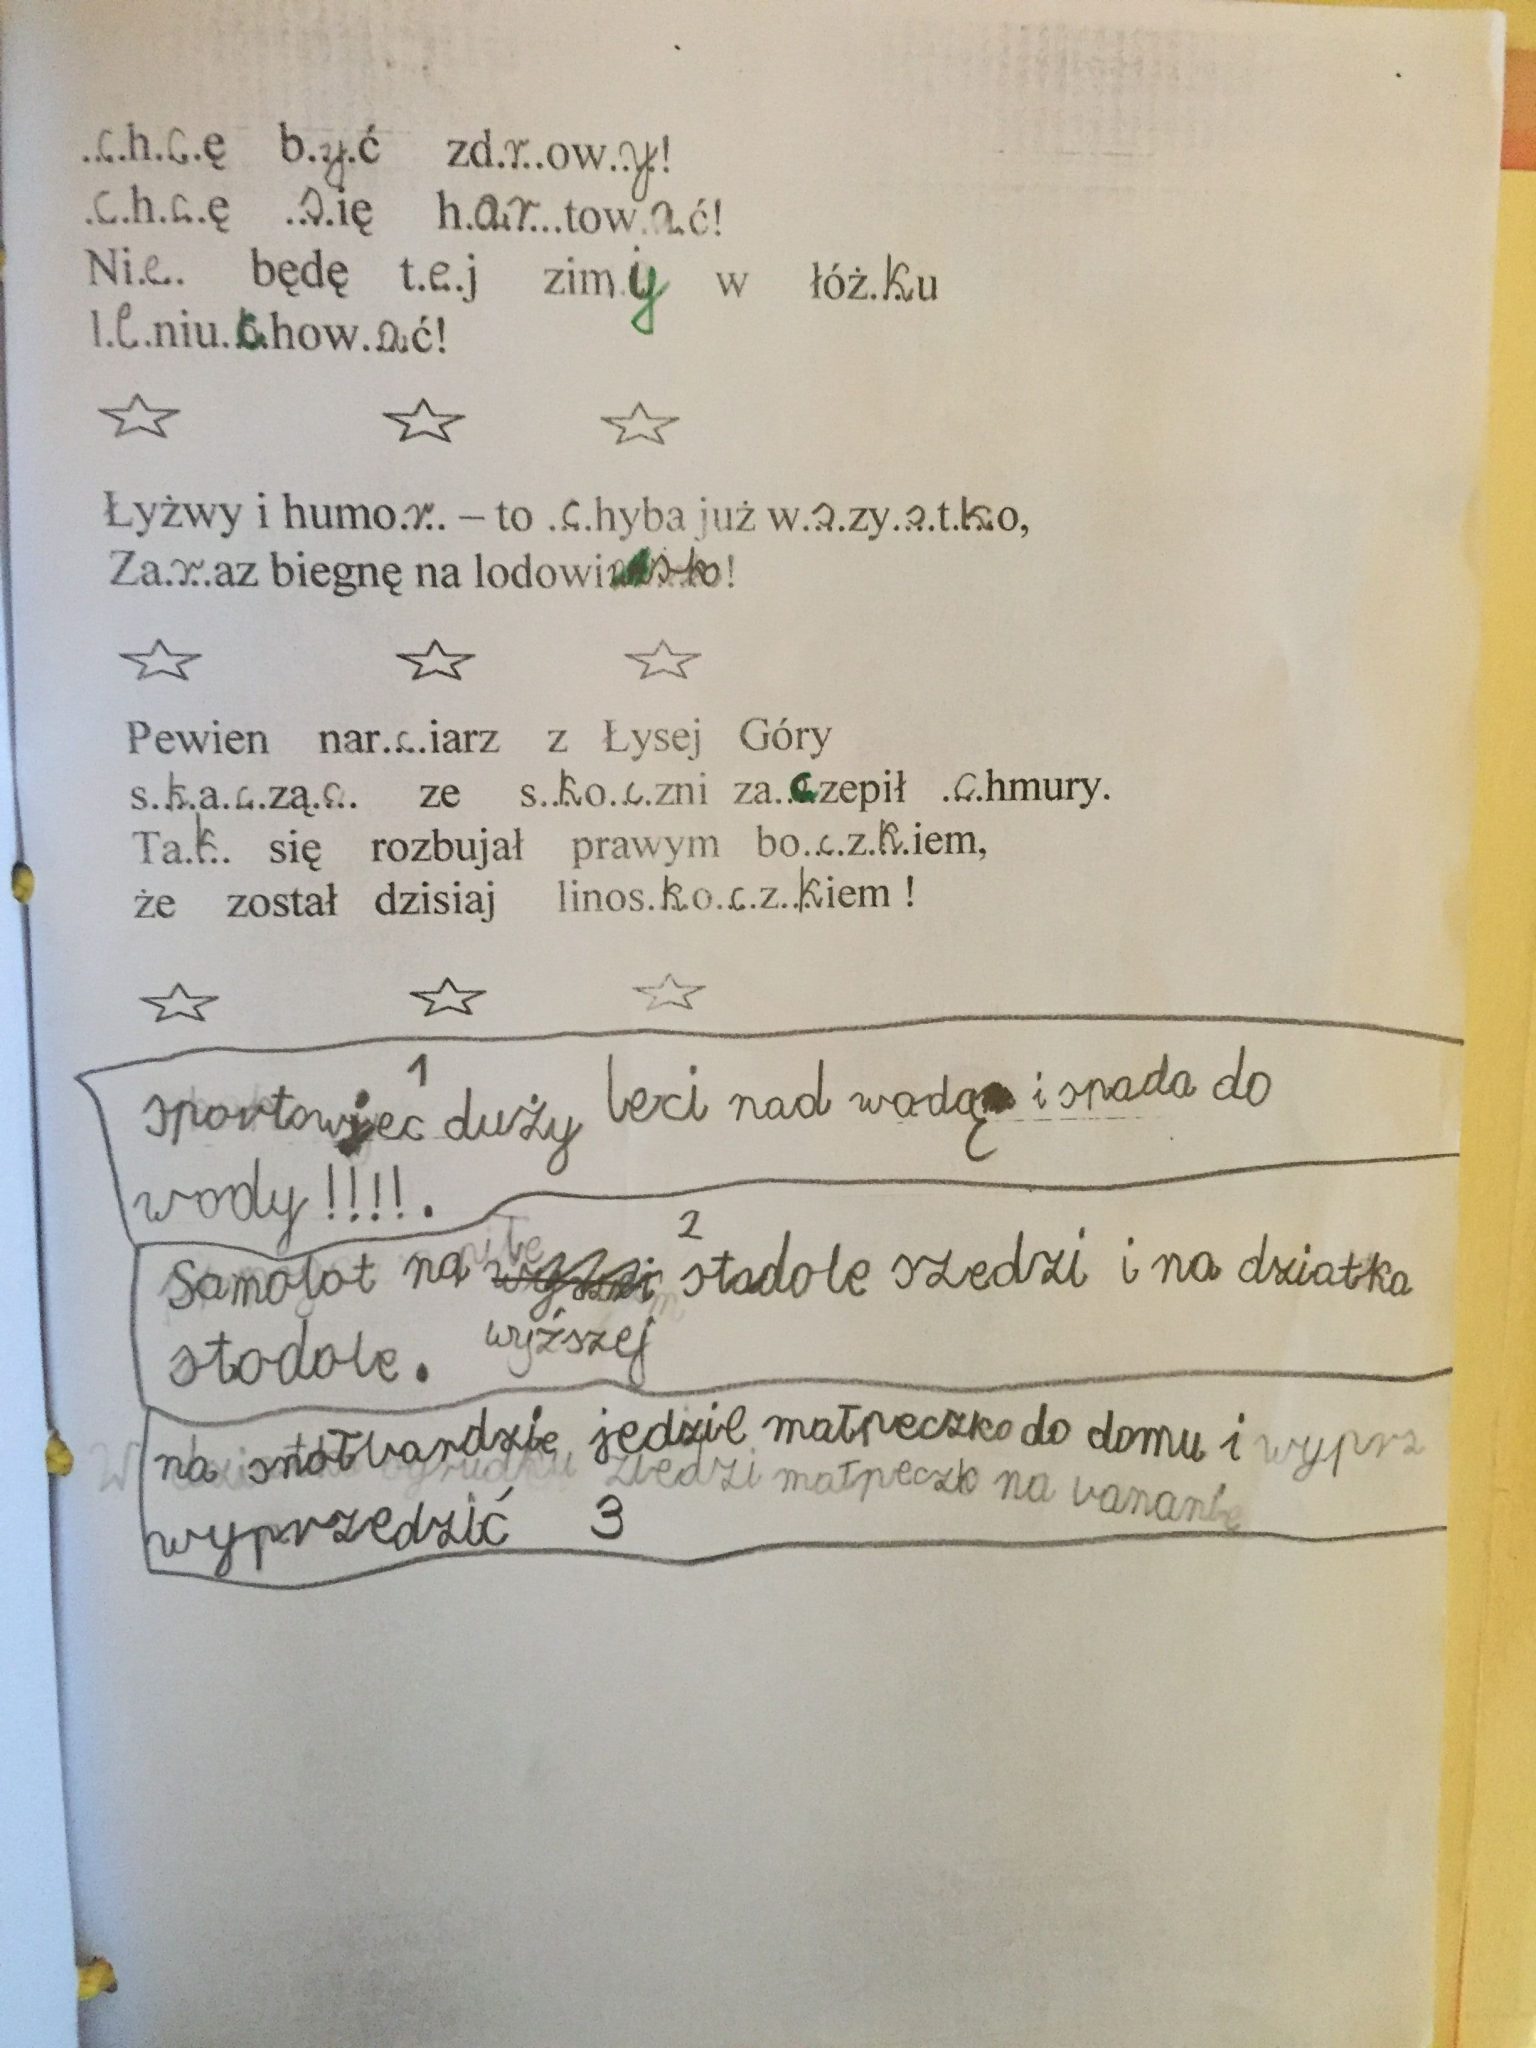 .c.h.c.ę b.y.ć zd.r..ow..y.!
.c.h.c.ę ..s.ię h.ar...tow.a.ć!
Ni.e.. będę t.e.j zim.y w łóż.k.u
l.e.niu.c.how.a.ć!
Łyżwy i humo.r.. – to .c.hyba już w.s.zy.s.t.k.o,
Za.r..az biegnę na lodowi sko!
Pewien nar.c.iarz z Łysej Góry
s.k.a.c.zą.c.. ze s..k.o.c.zni za..c.zepił .c.hmury.
Ta.k.. się rozbujał prawym bo..c.z.k.iem,
że został dzisiaj linos.k.o.c.z..kiem !
1
sportowiec duży leci nad wodą i spada do
wody !!!!.
2
Samolot na stodole szedzi i na dziatka
stodole. wyższej
na jedzie małpeczko do domu i wyprz
małpeczk na
wyprzedzić 3